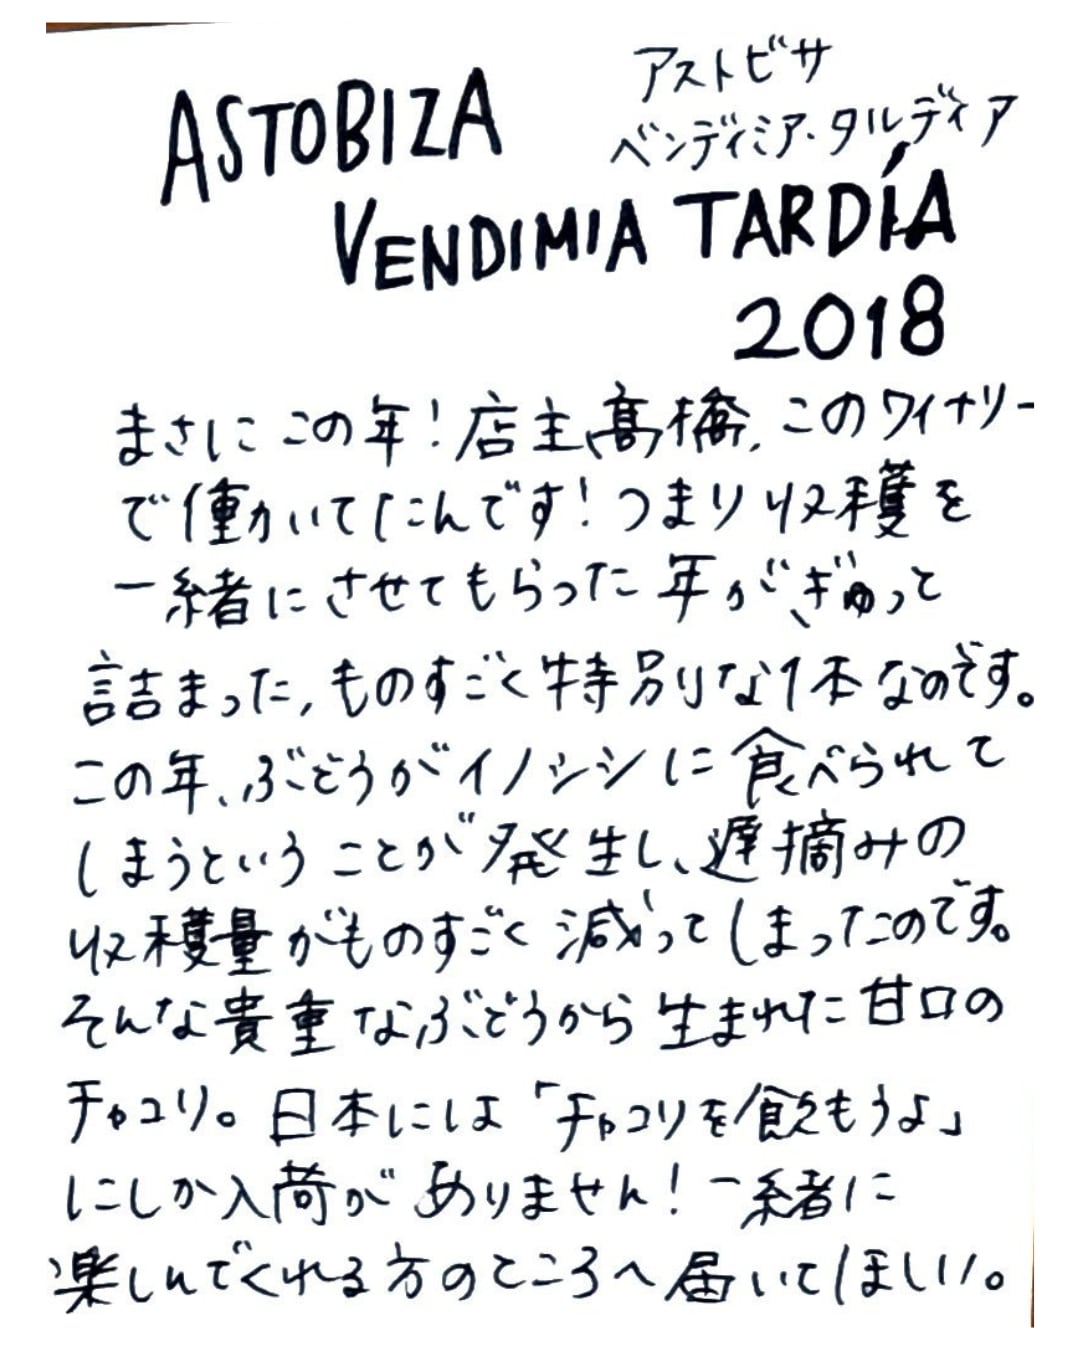 アストビサ
ベンディミア・タルディア
ASTOBIZA
VENDIMIA TARDÍA
2018
まさにこの年！店主髙橋、このワイナリー
で働かいてたんです！つまり収穫を
一緒にさせてもらった年が、ぎゅっと
詰まった、ものすごく特別な1本なのです。
この年、ぶどうがイノシシに食べられて
しまうということが発生し、遅摘みの
収穫量がものすごく減ってしまったのです。
そんな貴重なぶどうから生まれた甘口の
チャコリ。日本には「チャコリを飲もうよ」
にしか入荷がありません！一緒に
楽しんでくれる方のところへ届いてほしい。